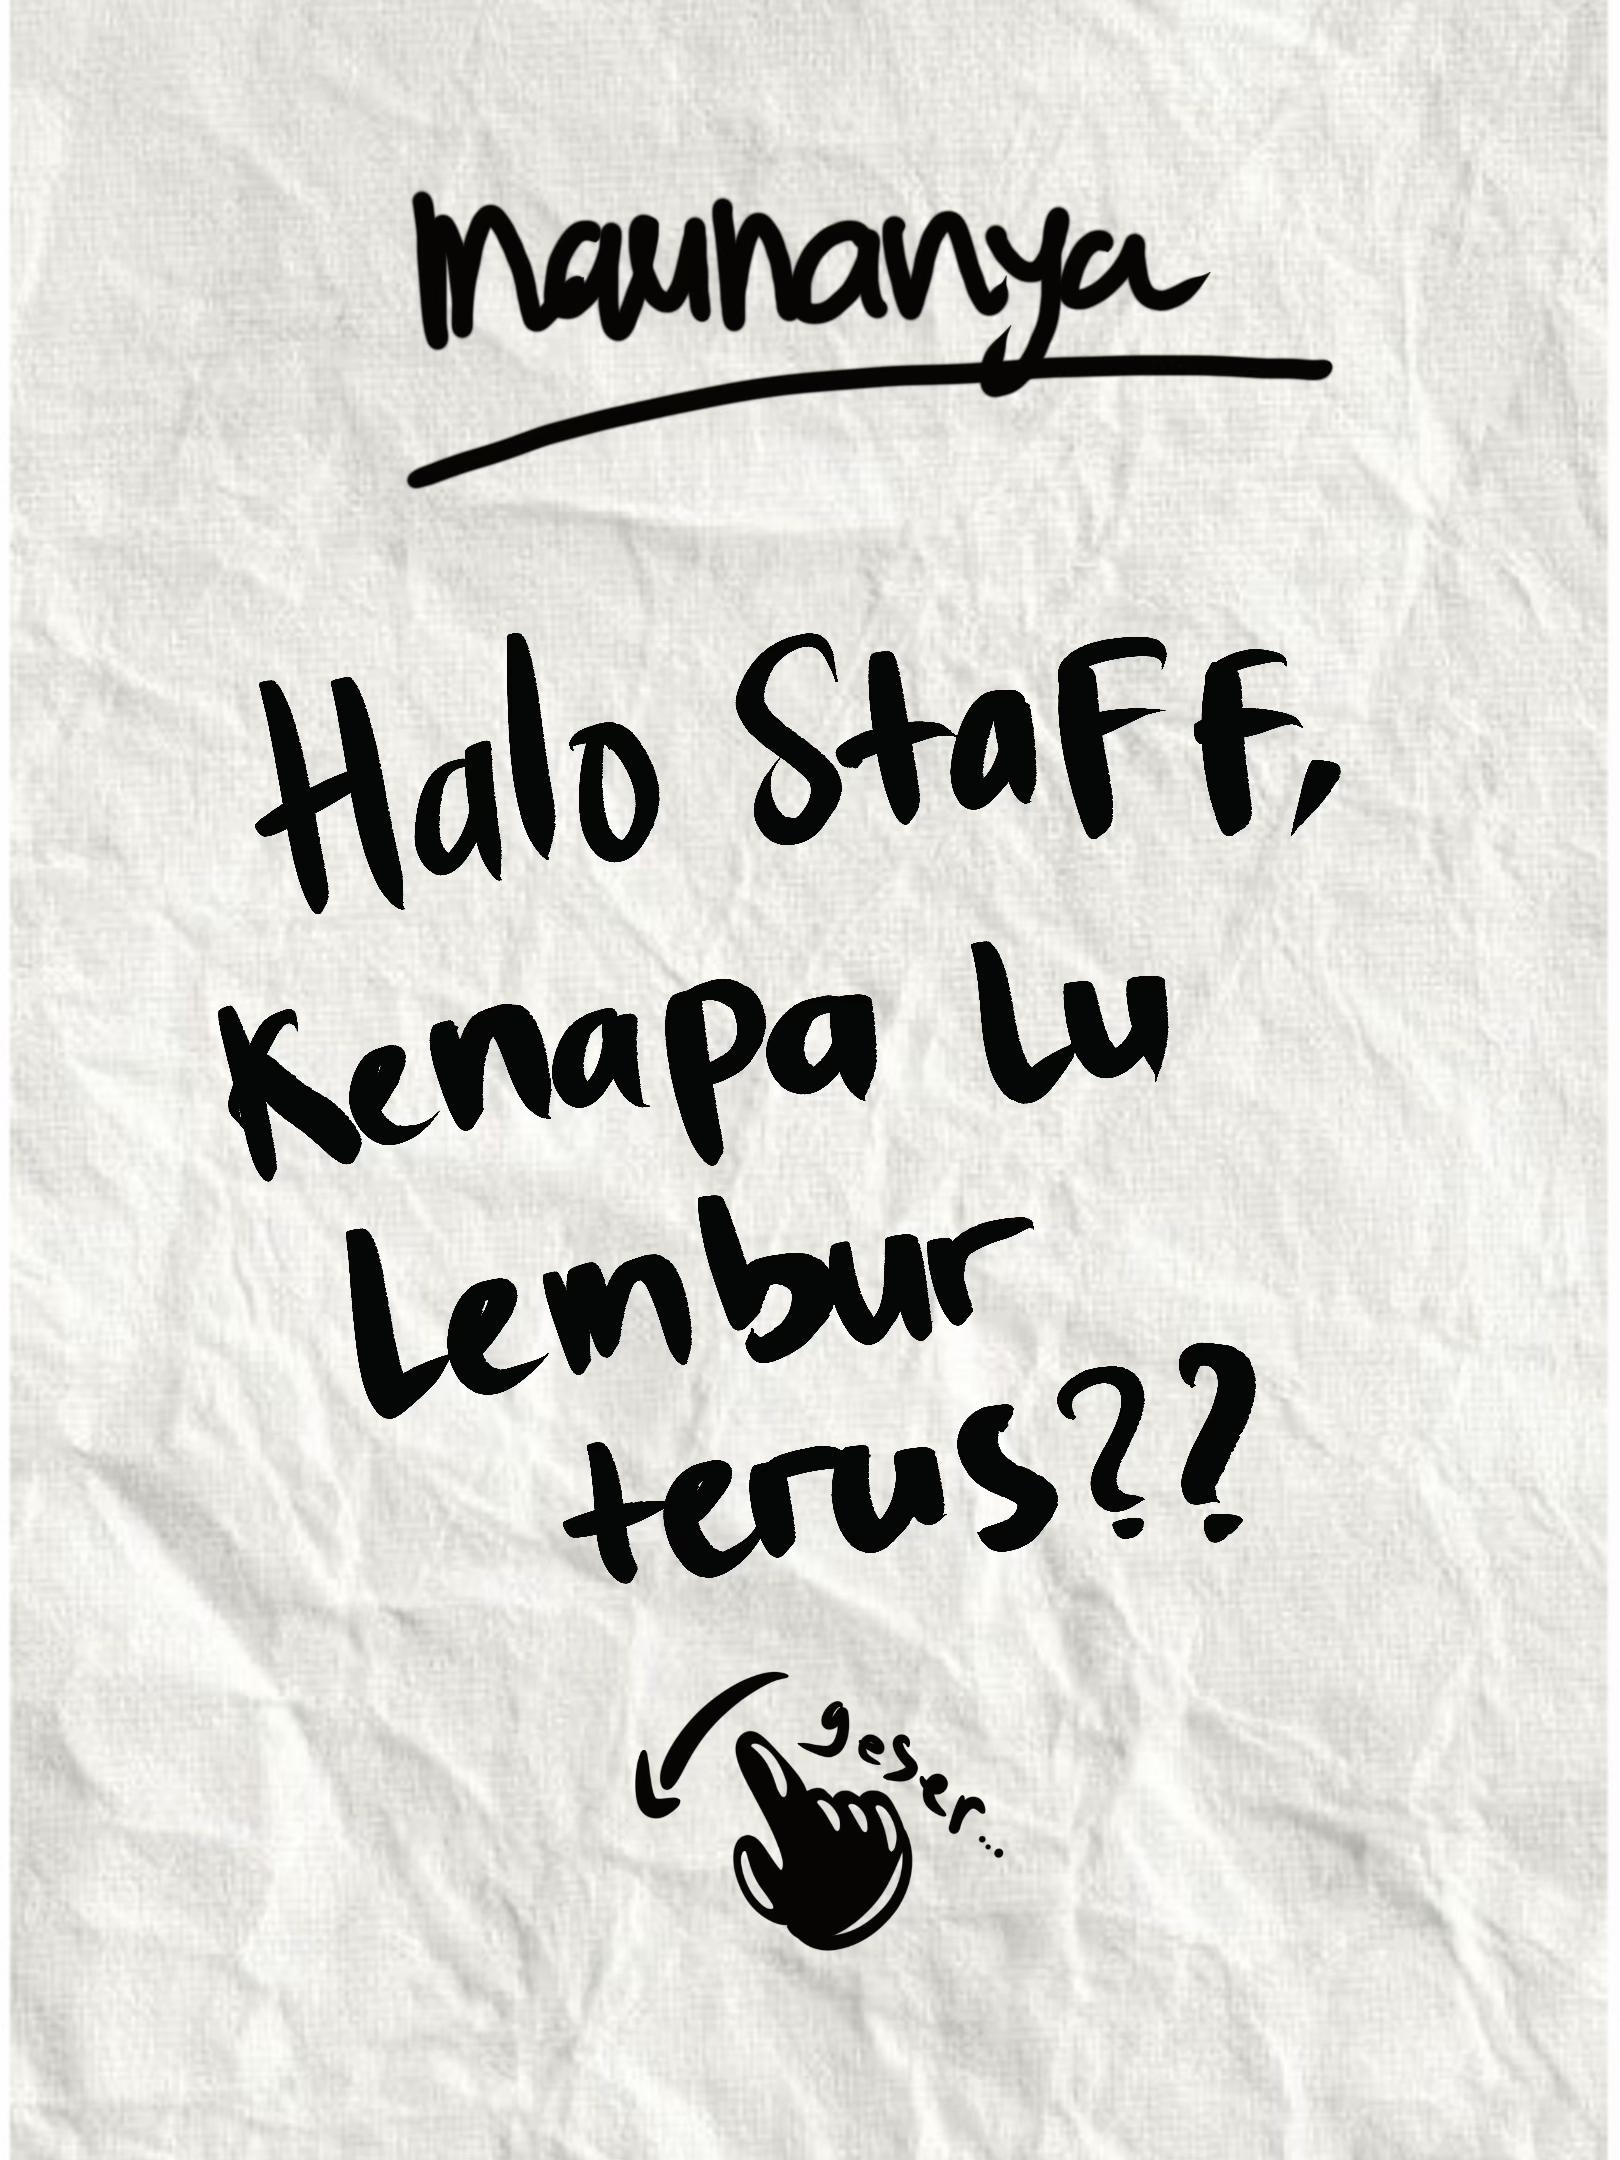 maunanya
Halo Staff,
Kenapa Lu
Lembur
terus??
geser...